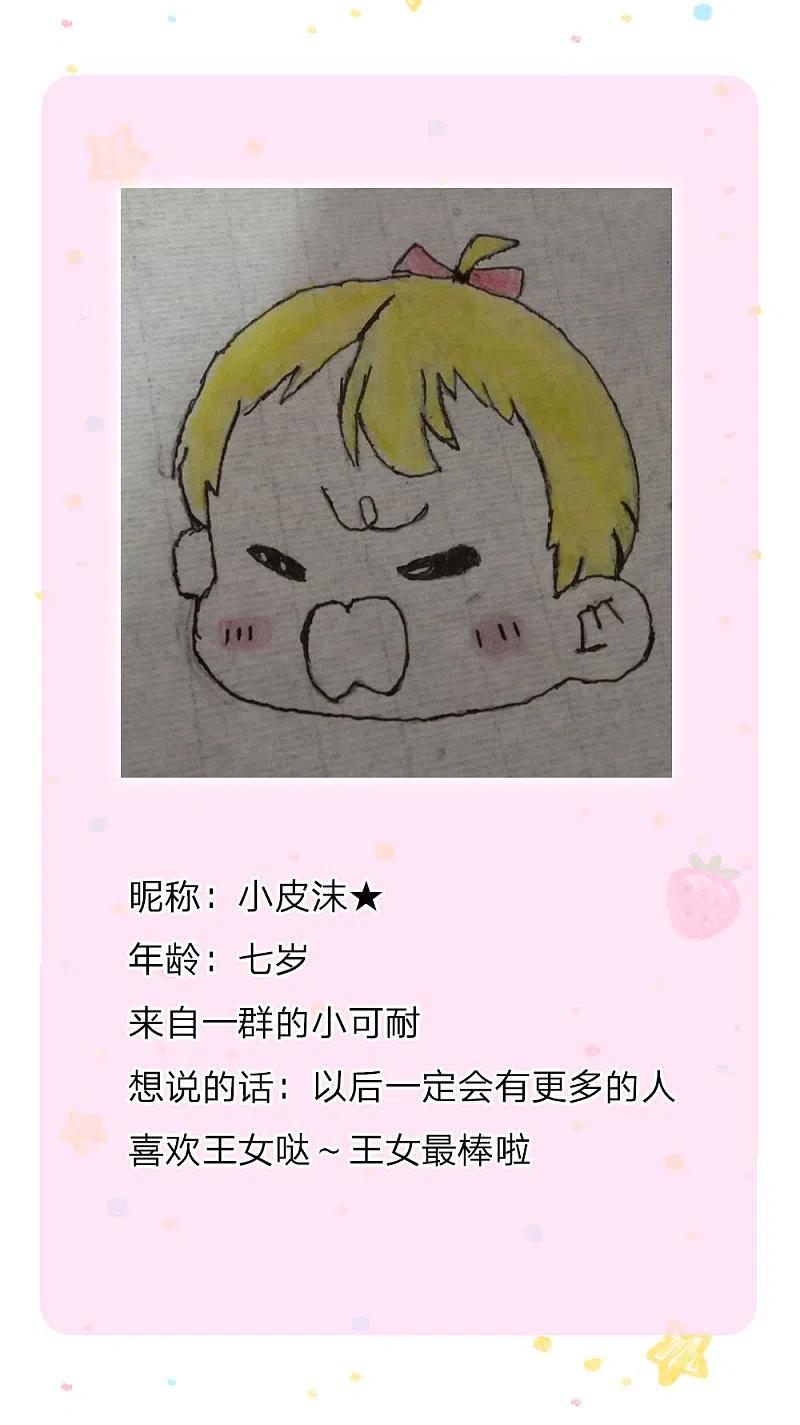 昵称：小皮沫★
年龄：七岁
来自一群的小可耐
想说的话：以后一定会有更多的人
喜欢王女哒～王女最棒啦